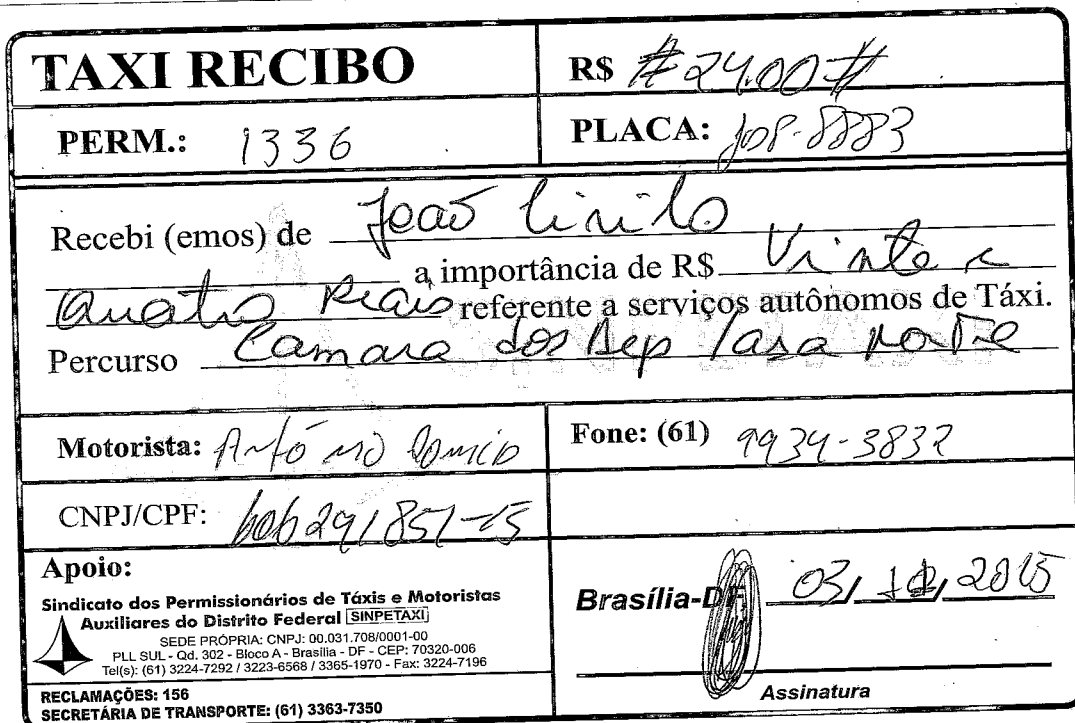 TAXI RECIBO
R$ #24.00#
PERM.: 1336
PLACA: JOP-8883
Recebi (emos) de João
a importância de R$ Vinte e
Quatro Reais referente a serviços autônomos de Táxi.
Percurso Camara dos Dep / asa norte
Motorista: Antônio
Fone: (61) 9934-3832
CNPJ/CPF: 606291851-15
Apoio:
Sindicato dos Permissionários de Táxis e Motoristas
Auxiliares do Distrito Federal SINPETAXI
SEDE PRÓPRIA: CNPJ: 00.031.708/0001-00
PLL SUL - Qd. 302 - Bloco A - Brasília - DF - CEP: 70320-006
Tel(s): (61) 3224-7292 / 3223-6568 / 3365-1970 - Fax: 3224-7196
RECLAMAÇÕES: 156
SECRETÁRIA DE TRANSPORTE: (61) 3363-7350
Brasília-DF, 03/ /2015
Assinatura